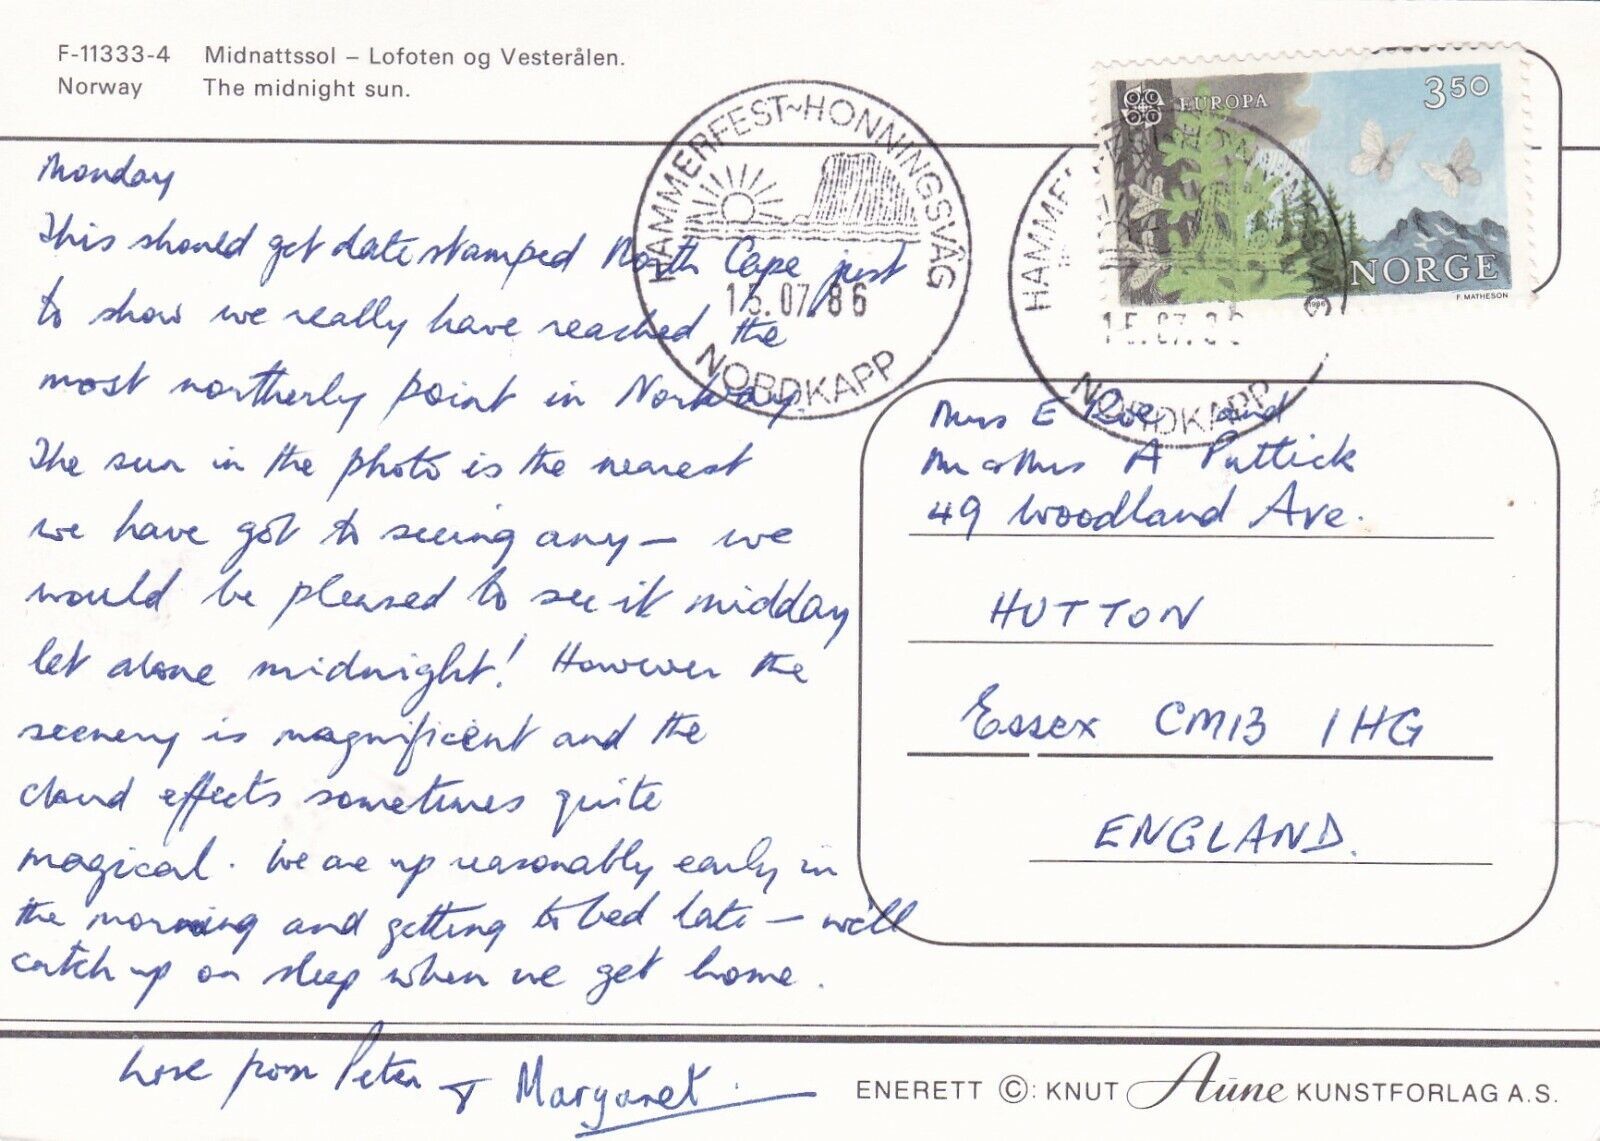 F-11333-4 Midnattssol – Lofoten og Vesterålen.
Norway The midnight sun.
HAMMERFEST~HONNINGSVÅG
15.07.86
NORDKAPP
EUROPA
3 50
NORGE
1986
F. MATHESON
HAMMERFEST~HONNINGSVÅG
15.07.86
NORDKAPP
Monday
This should get date stamped North Cape just
to show we really have reached the
most northerly point in Norway.
The sun in the photo is the nearest
we have got to seeing any – we
would be pleased to see it midday
let alone midnight! However the
scenery is magnificent and the
cloud effects sometimes quite
magical. We are up reasonably early in
the morning and getting to bed late – we'll
catch up on sleep when we get home.
Love from Peter & Margaret
Mrs E and
Mr & Mrs A Puttick
49 Woodland Ave.
HUTTON
Essex CM13 1HG
ENGLAND.
ENERETT ©: KNUT Aune KUNSTFORLAG A.S.